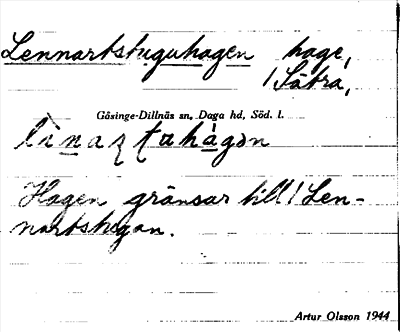 Lennartstuguhagen hage,
/Sätra,
Gåsinge-Dillnäs sn, Daga hd, Söd. l.
Hagen gränsar till / Len-
nartstugan.
Artur Olsson 1944